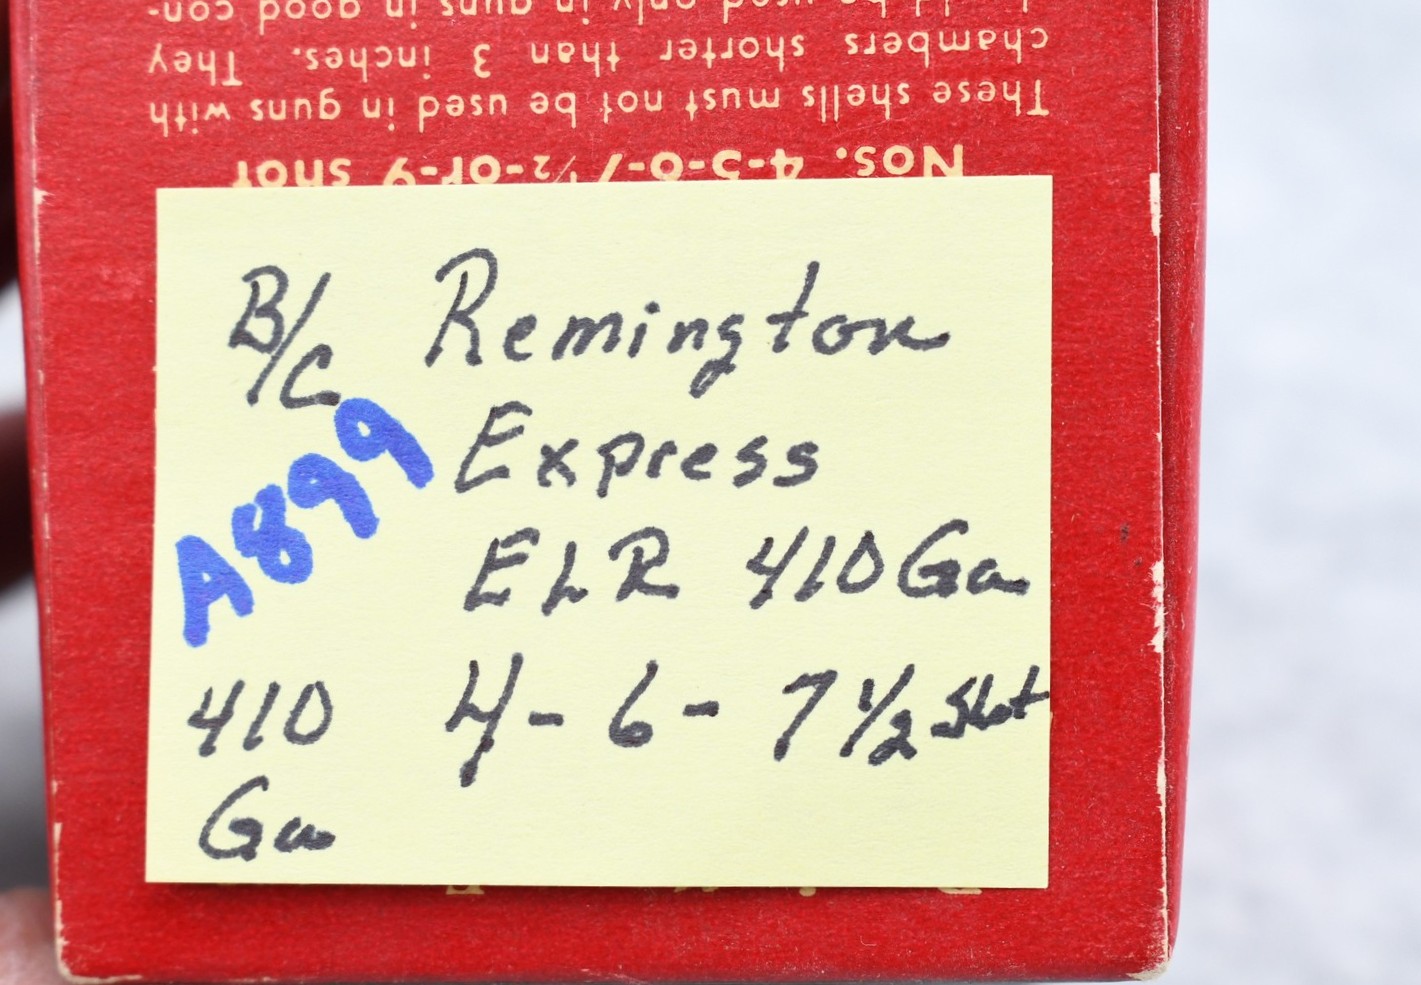 Nos. 4-5-6-7½-or-9 shot
These shells must not be used in guns with
chambers shorter than 3 inches. They
should be used only in guns in good con-
B/C Remington
A899 Express
ELR 410 Ga
410 4-6-7 1/2 Shot
Ga